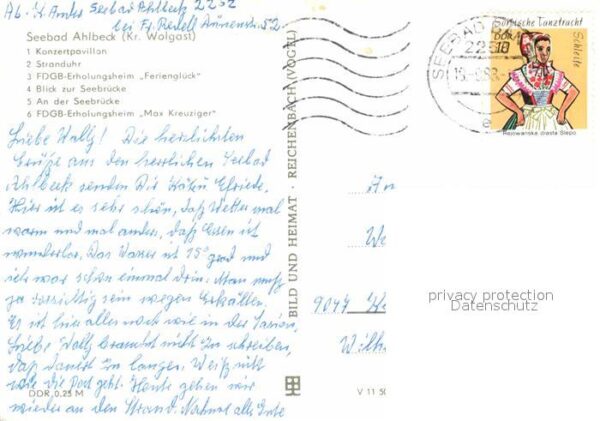 Ab. z. Zt. Seebad Ahlbeck 2252
bei Fr. Redell Dünenstr. 52
Seebad Ahlbeck (Kr. Wolgast)
1 Konzertpavillon
2 Stranduhr
3 FDGB-Erholungsheim „Ferienglück"
4 Blick zur Seebrücke
5 An der Seebrücke
6 FDGB-Erholungsheim „Max Kreuziger"
Liebe Wally! Die herzlichsten
Grüße aus den herrlichen Seebad
Ahlbeck senden Dir Käten Elfriede.
Hier ist es sehr schön, daß Wetter mal
warm und mal anders, daß Essen ist
wunderbar. Das Wasser ist 15° grad und
ich war schon einmal drin. Man muß
ja vorsichtig sein wegen Erkälten.
Es ist hier alles noch wie in der Saison,
Liebe Wally brauchst nicht zu schreiben,
daß dauert zu lange. Weißt nicht
wie die Post geht. Heute gehen wir
wieder an den Strand. Nochmal alles Gute
DDR 0,25 M
BILD UND HEIMAT · REICHENBACH (VOGTL)
V 11 50
SEEBAD
2252
Sorbische Tanztracht
DDR
10
Schleife
Rejowanska drasta Slepo
An
We
9044
Wilh
privacy protection
Datenschutz